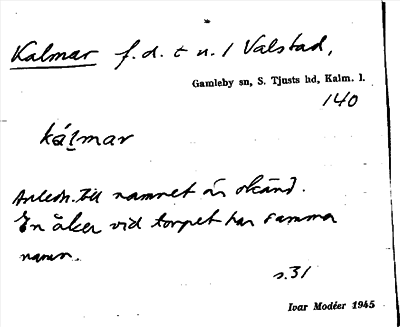 Kalmar f. d. t u. / Valstad,
Gamleby sn, S. Tjusts hd, Kalm. l.
140
kálmar
Anledn. till namnet är okänd.
En åker vid torpet har samma
namn.
s. 31
Ivar Modéer 1945